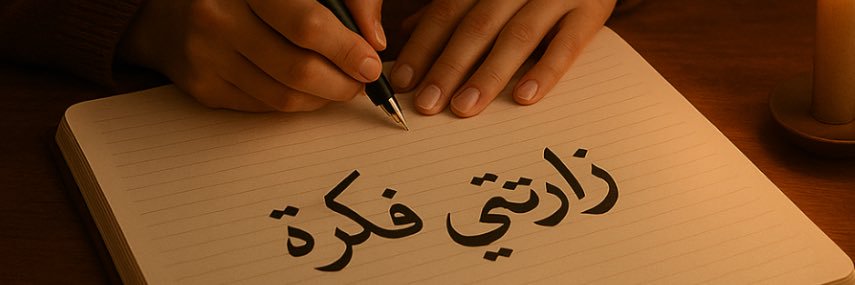 زارتتي فكرة